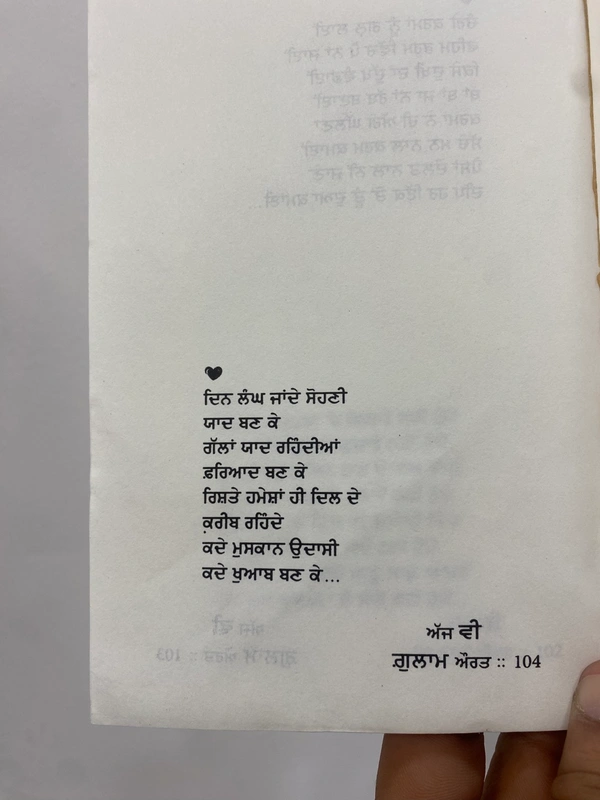 ਦਿਨ ਲੰਘ ਜਾਂਦੇ ਸੋਹਣੀ
ਯਾਦ ਬਣ ਕੇ
ਗੱਲਾਂ ਯਾਦ ਰਹਿੰਦੀਆਂ
ਫ਼ਰਿਆਦ ਬਣ ਕੇ
ਰਿਸ਼ਤੇ ਹਮੇਸ਼ਾਂ ਹੀ ਦਿਲ ਦੇ
ਕ਼ਰੀਬ ਰਹਿੰਦੇ
ਕਦੇ ਮੁਸਕਾਨ ਉਦਾਸੀ
ਕਦੇ ਖੁਆਬ ਬਣ ਕੇ...
ਅੱਜ ਵੀ
ਗ਼ੁਲਾਮ ਔਰਤ :: 104